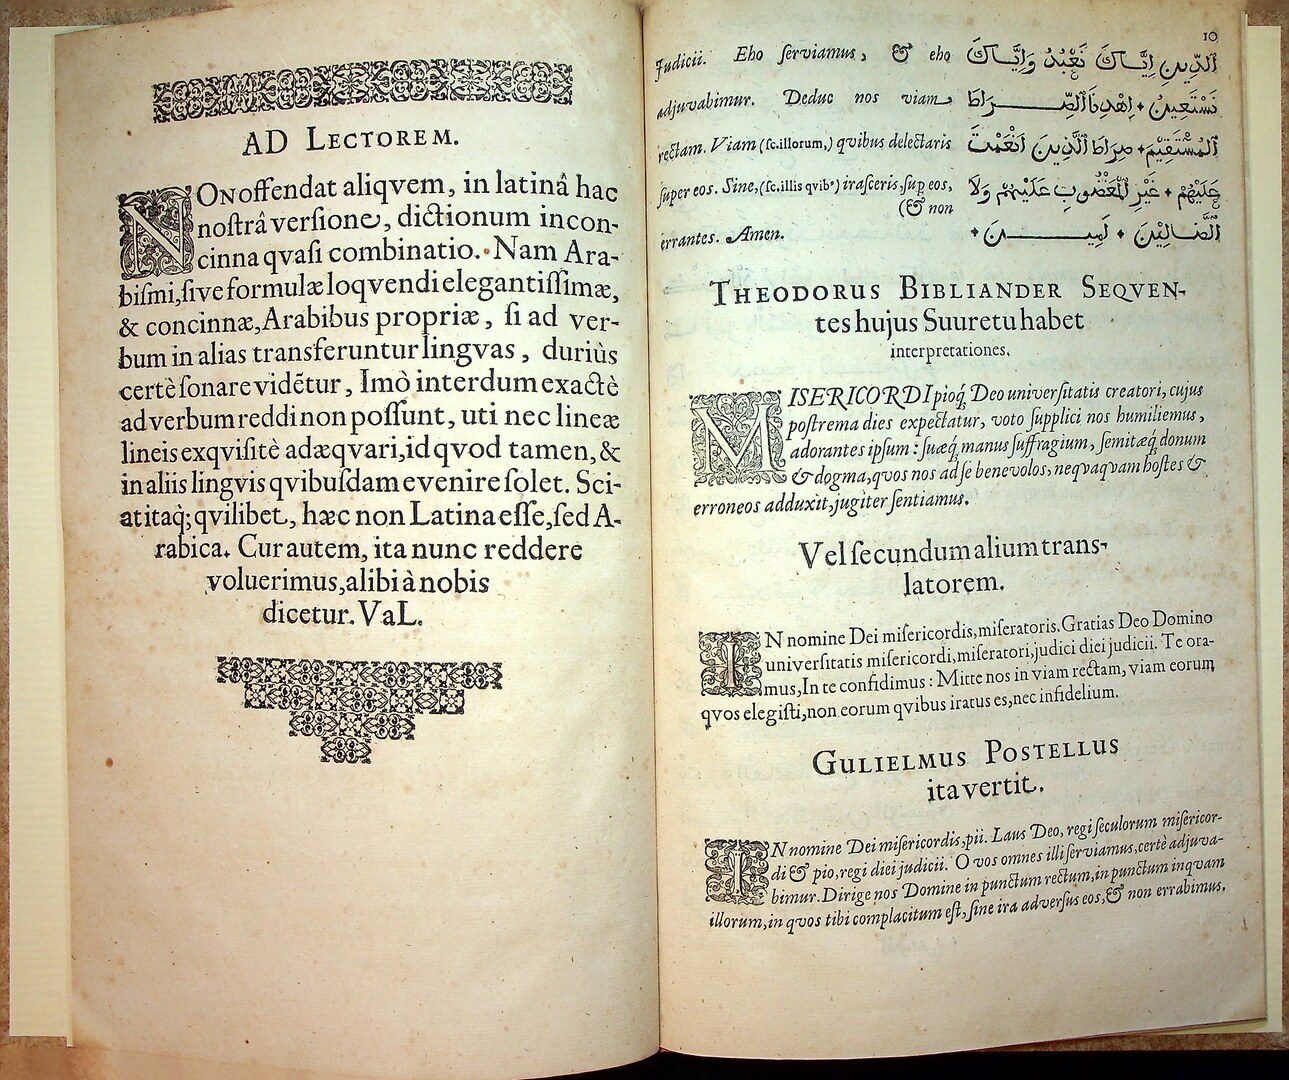 AD LECTOREM.
NON offendat aliqvem, in latinâ hac
nostrâ versione, dictionum incon-
cinna qvasi combinatio. Nam Ara-
bismi, sive formulæ loqvendi elegantissimæ,
& concinnæ, Arabibus propriæ, si ad ver-
bum in alias transferuntur lingvas, duriùs
certè sonare vidẽtur, Imò interdum exactè
ad verbum reddi non possunt, uti nec lineæ
lineis exqvisitè adæqvari, id qvod tamen, &
in aliis lingvis qvibusdam evenire solet. Sci-
at itaq; qvilibet, hæc non Latina esse, sed A-
rabica. Cur autem, ita nunc reddere
voluerimus, alibi à nobis
dicetur. VaL.
10
Judicii. Eho serviamus, & eho الدِّينِ اِيَّاكَ نَعْبُدُ وَاِيَّاكَ
adjuvabimur. Deduc nos viam نَسْتَعِينُ + اِهْدِنَا الصِّرَاطَ
rectam. Viam (sc. illorum,) qvibus delectaris المُسْتَقِيمَ + صِرَاطَ الَّذِينَ اَنْعَمْتَ
super eos. Sine, (sc. illis qvib⁹) irasceris, sup eos, عَلَيْهِمْ + غَيْرِ الْمَغْضُوبِ عَلَيْهِمْ وَلَا
(& non
errantes. Amen. الضَّالِيْنَ + اَمِينَ +
THEODORUS BIBLIANDER SEQVEN-
tes hujus Suuretu habet
interpretationes.
MISERICORDI pioq́; Deo universitatis creatori, cujus
postrema dies expectatur, voto supplici nos humiliemus,
adorantes ipsum: suæq́; manus suffragium, semitæq́; donum
& dogma, qvos nos ad se benevolos, neqvaqvam hostes &
erroneos adduxit, jugiter sentiamus.
Vel secundum alium trans-
latorem.
IN nomine Dei misericordis, miseratoris. Gratias Deo Domino
universitatis misericordi, miseratori, judici diei judicii. Te ora-
mus, In te confidimus: Mitte nos in viam rectam, viam eorum
qvos elegisti, non eorum qvibus iratus es, nec infidelium.
GULIELMUS POSTELLUS
ita vertit.
IN nomine Dei misericordis, pii. Laus Deo, regi seculorum misericor-
di & pio, regi diei judicii. O vos omnes illi serviamus, certè adjuva-
bimur. Dirige nos Domine in punctum rectum, in punctum inqvam
illorum, in qvos tibi complacitum est, sine ira adversus eos, & non errabimus.